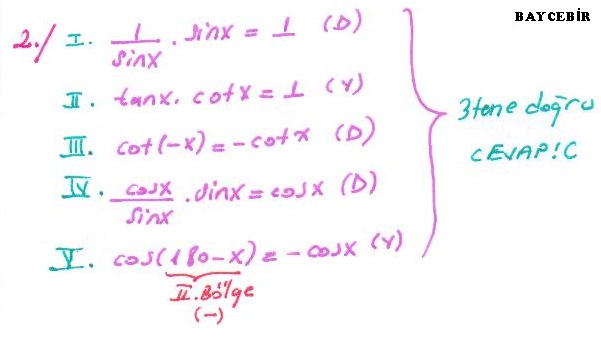 BAYCEBİR
2./ I. 1/sinx . sinx = 1 (D)
II. tanx. cotx = 1 (Y)
III. cot(-x) = -cotx (D)
IV. cosx/sinx . sinx = cosx (D)
V. cos(180-x) = -cosx (Y)
II. Bölge
(-)
3tene doğru
CEVAP: C